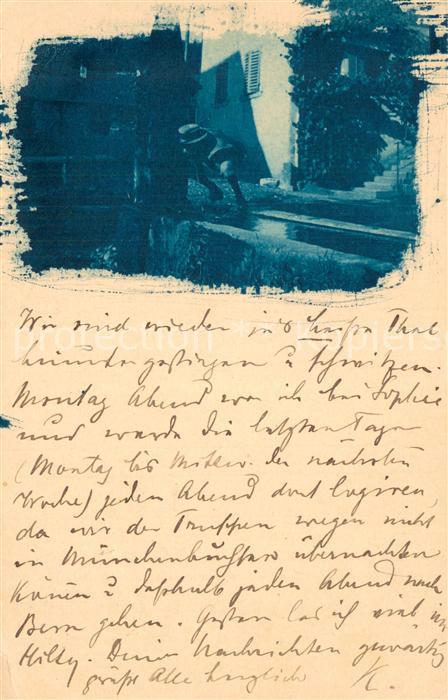 Wir sind wieder in's heisse Thal
hinunter gestiegen u schwitzen.
Montag Abend war ich bei Sophie
und werde die letzten Tage
(Montag bis Mittw. der nächsten
Woche) jeden Abend dort logiren,
da wir der Truppen wegen nicht
in Münchenbuchsee übernachten
können u deshalb jeden Abend nach
Bern gehen. Gestern las ich viel in
Hilty. Deine Nachrichten gewärtig
grüsst Alle herzlich K.